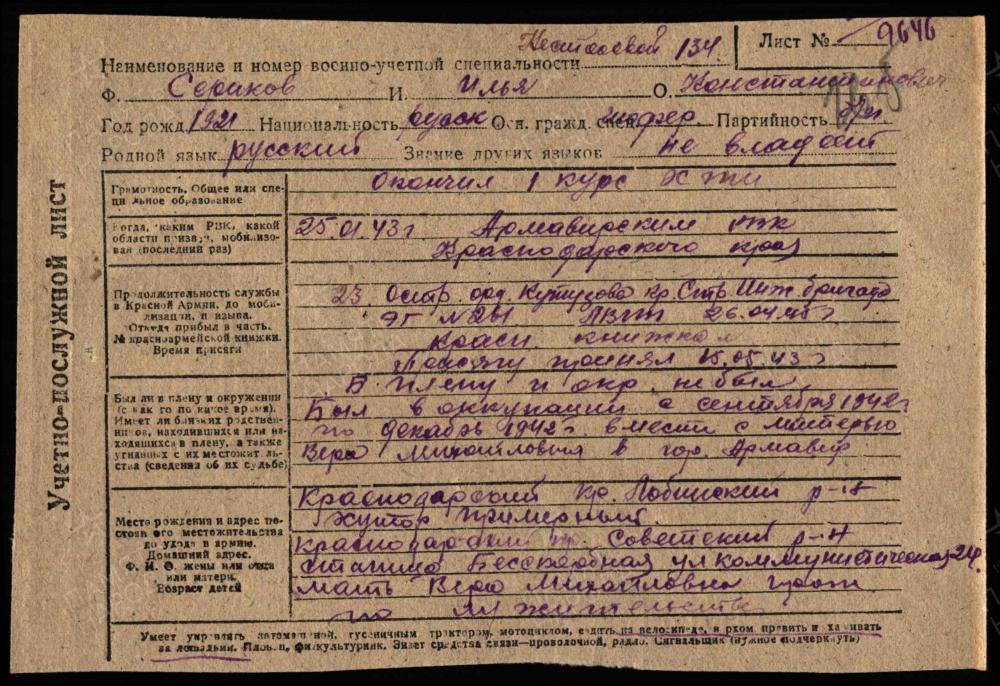 Лист № 9646
134
Наименование и номер военно-учетной специальности
Ф. Седиков И. Илья О. Константинович
Год рожд. 1921 Национальность русск Осн. гражд. спец. шофер. Партийность
Родной язык русский Знание других языков не владеет
Учетно-послужной лист
Грамотность. Общее или специальное образование
Окончил 1 курс
Когда, каким РВК, какой области призван, мобилизован (последний раз)
25.01.43 г Армавирским
Краснодарского края
Продолжительность службы в Красной Армии, до мобилизации, призыва. Откуда прибыл в часть. № красноармейской книжки. Время присяги
23 орд. Кутузова Инж. бригада
26.04.45 г
Красн. книжка
Присягу принял 15.05.43 г
Был ли в плену и окружении (с как го по какое время). Имеет ли близких родственников, находившихся или находящихся в плену, а также угнанных с их местожительства (сведения об их судьбе)
В плену и окр. не был
Был в оккупации с сентября 1942 г
по декабрь 1942 г вместе с матерью
Вера Михайловна в гор. Армавир
Место рождения и адрес постоянного местожительства до ухода в армию. Домашний адрес. Ф. И. О. жены или отца или матери. Возраст детей
Краснодарский кр. Лабинский р-н
Хутор Примерный
Краснодарский кр. Советский р-н
станица Бесскорбная ул Коммунистическая
мать Вера Михайловна
по жительства
Умеет управлять автомашиной, гусеничным трактором, мотоциклом, ездить на велосипеде, верхом править и ухаживать
за лошадьми. Пловец, физкультурник. Знает средства связи—проволочной, радио. Сигнальщик (нужное подчеркнуть)